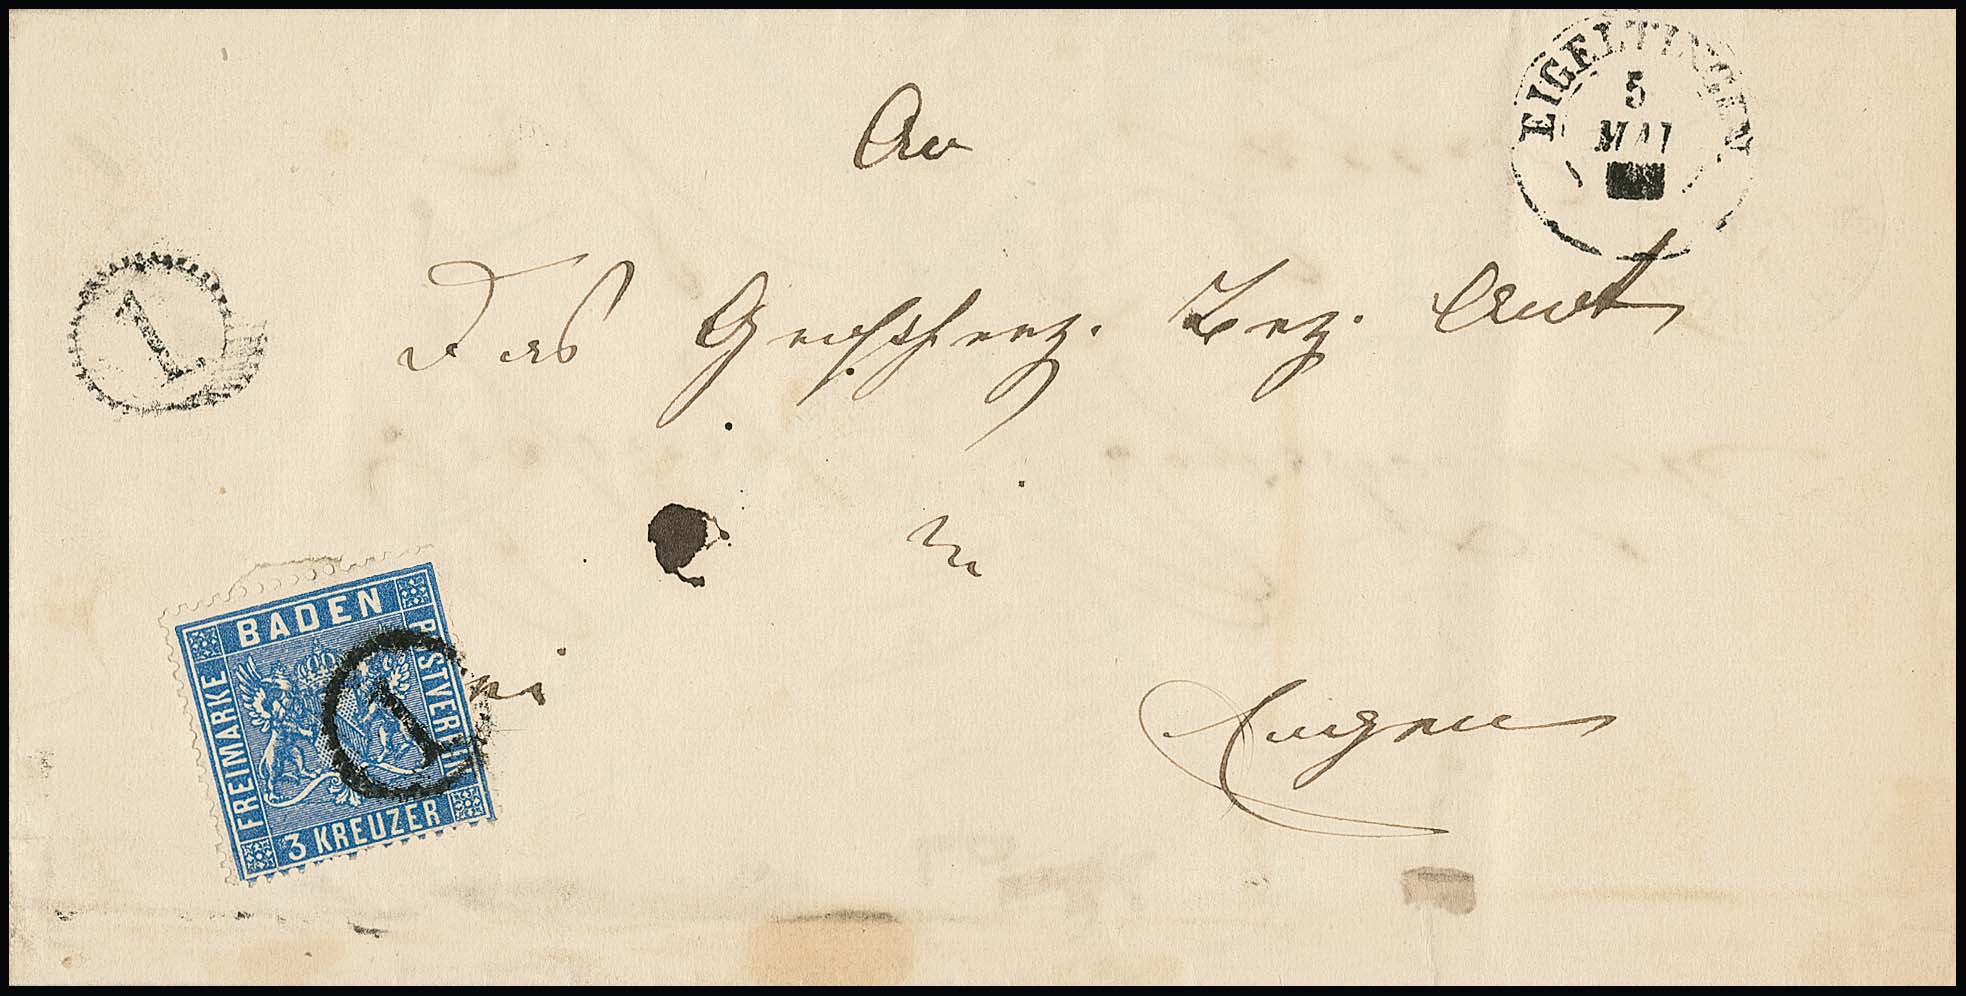 EIGELTINGEN
5
MAI
An
1.
Das Großherz. Bez. Amt
in
BADEN
FREIMARKE
POSTVEREIN
3 KREUZER
1
Engen